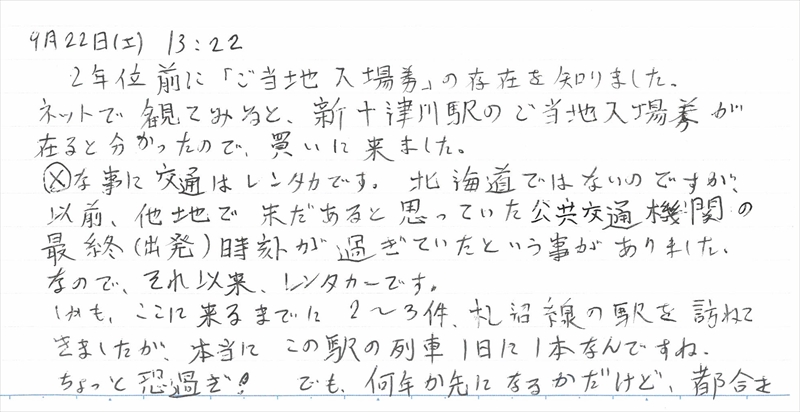 9月22日(土) 13:22
2年位前に「ご当地入場券」の存在を知りました。
ネットで観てみると、新十津川駅のご当地入場券が
在ると分かったので、買いに来ました。
な事に交通はレンタカです。北海道ではないのですが、
以前、他地で未だあると思っていた公共交通機関の
最終(出発)時刻が過ぎていたという事がありました。
なので、それ以来、レンタカーです。
ここに来るまでに 2〜3件、札沼線の駅を訪ねて
きましたが、本当にこの駅の列車1日に1本なんですね。
ちょっと恐過ぎ! でも、何年か先になるかだけど、都合を